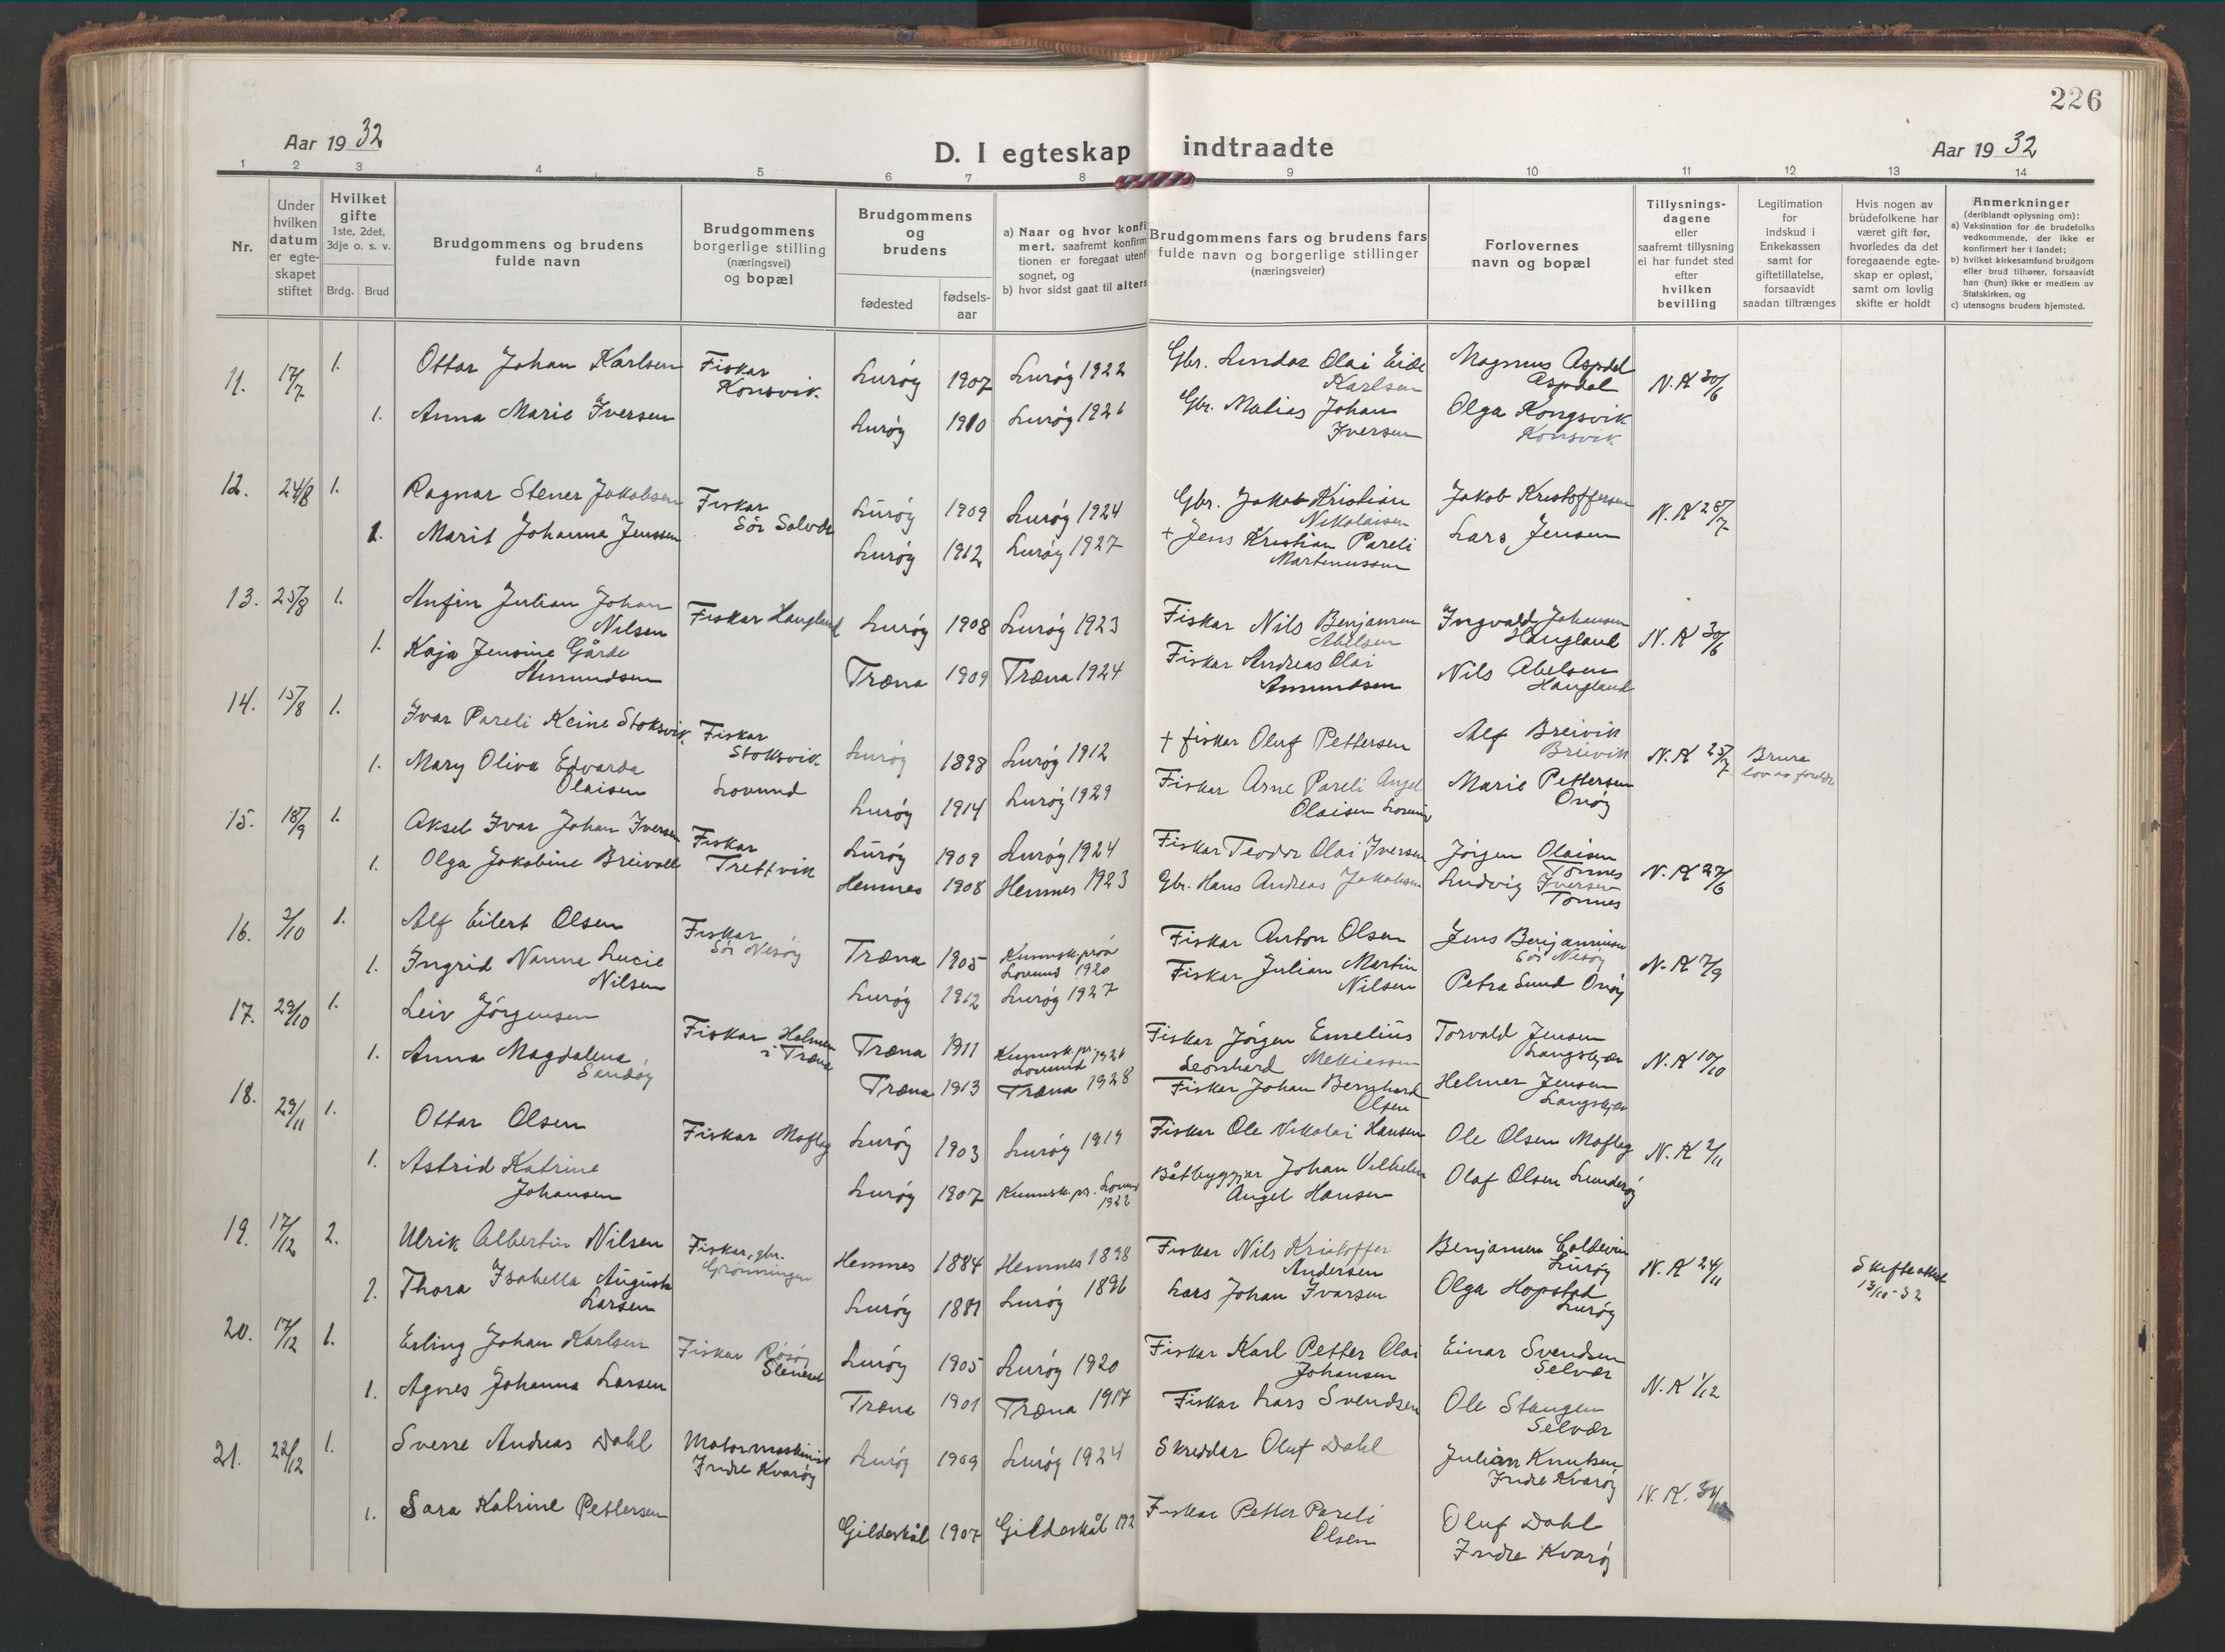 226
Aar 1932
D. I egteskap indtraadte
Aar 1932
1 2 3 4 5 6 7 8 9 10 11 12 13 14
Nr.
Under hvilken datum er egte-skapet stiftet
Hvilket gifte 1ste, 2det, 3dje o. s. v.
Brdg. Brud
Brudgommens og brudens fulde navn
Brudgommens borgerlige stilling (næringsvei) og bopæl
Brudgommens og brudens
fødested
fødsels-aar
a) Naar og hvor konfi
mert, saafremt konfirm
tionen er foregaat utenf
sognet, og
b) hvor sidst gaat til alters
Brudgommens fars og brudens fars fulde navn og borgerlige stillinger (næringsveier)
Forlovernes navn og bopæl
Tillysnings-dagene eller saafremt tillysning ei har fundet sted efter hvilken bevilling
Legitimation for indskud i Enkekassen samt for giftetillatelse, forsaavidt saadan tiltrænges
Hvis nogen av brudefolkene har været gift før, hvorledes da det foregaaende egte-skap er opløst, samt om lovlig skifte er holdt
Anmerkninger
(deriblandt oplysning om):
a) Vaksination for de brudefolks vedkommende, der ikke er konfirmert her i landet;
b) hvilket kirkesamfund brudgom eller brud tilhører, forsaavidt han (hun) ikke er medlem av Statskirken, og
c) utensogns bruders hjemsted.
11. 17/7 1. Ottar Johan Karlsen Fiskar Konsvik. Lurøy 1907 Lurøy 1922 Gbr. Lindar Olai Eide Karlsen Magnus Aspdal Aspdal N.K 30/6
1. Anna Marie Iversen Lurøy 1910 Lurøy 1926 Gbr. Matias Johan Iversen Olga Kongsvik Konsvik
12. 24/8 1. Ragnar Stener Jakobsen Fiskar Sør Solvær Lurøy 1909 Lurøy 1924 Gbr. Jakob Kristian Nikolaisen Jakob Kristoffersen N.K 28/7
1. Marit Johanna Jenssen Lurøy 1912 Lurøy 1927 + Jens Kristian Pareli Martinussen Lars Jensen
13. 25/8 1. Anfin Julian Johan Nilsen Fiskar Haugland Lurøy 1908 Lurøy 1923 Fiskar Nils Benjamin Abelsen Ingvald Johansen Haugland N.K 30/6
1. Kaja Jensine Gårde Amundsen Træna 1909 Træna 1924 Fiskar Andreas Olai Amundsen Nils Abelsen Haugland
14. 15/8 1. Ivar Pareli Keine Stoksvik Fiskar Stoksvik Lurøy 1898 Lurøy 1912 + fiskar Oluf Pettersen Alf Breivik Breivik N.K 25/7 Brura lov av foreldre
1. Mary Oliva Edvarda Olaisen Lovund Lurøy 1914 Lurøy 1929 Fiskar Arne Pareli Angel Olaisen Lovund Marie Pettersen Onøy
15. 18/9 1. Aksel Ivar Johan Iversen Fiskar Trettvik Lurøy 1909 Lurøy 1924 Fiskar Teodor Olai Iversen Jørgen Olaisen Tonnes N.K 27/6
1. Olga Jakobine Breivoll Hemnes 1908 Hemnes 1923 Gbr. Hans Andreas Jakobsen Ludvig Iversen Tonnes
16. 2/10 1. Alf Eilert Olsen Fiskar Sør Nesøy Træna 1905 Kunnskprøv Lovund 1920 Fiskar Anton Olsen Jens Benjaminsen Sør Nesøy N.K 7/9
1. Ingrid Nanna Lucie Nilsen Lurøy 1912 Lurøy 1927 Fiskar Julian Martin Nilsen Petra Sund Onøy
17. 29/10 1. Leiv Jørgensen Fiskar Holmen i Træna Træna 1911 Kunnsk.pr. 1926 Lovund Fiskar Jørgen Emelius Leonhard Mekiassen Torvald Jensen Langskjær N.K 10/10
1. Anna Magdalena Sandøy Træna 1913 Træna 1928 Fiskar Johan Bernhard Olsen Helmer Jensen Langskjær
18. 29/11 1. Ottar Olsen Fiskar Moflag Lurøy 1903 Lurøy 1919 Fiskar Ole Nikolai Hansen Ole Olsen Moflag N.K 2/11
1. Astrid Katrine Johansen Lurøy 1907 Kunnsk.pr. Lovund 1922 Båtbyggjar Johan Vilhelm Angel Hansen Olaf Olsen Lunderøy
19. 17/12 2. Ulrik Albertin Nilsen Fiskar, gbr. Grønningen Hemnes 1884 Hemnes 1898 Fiskar Nils Kristoffer Andersen Benjamin Coldevin Lurøy N.K 24/11 Skifteattest 13/10-32
2. Thora Isabella Augusta Larsen Lurøy 1881 Lurøy 1896 Lars Johan Ivarsen Olga Hopstad Lurøy
20. 17/12 1. Erling Johan Karlsen Fiskar Røsøy Stenesel Lurøy 1905 Lurøy 1920 Fiskar Karl Petter Olai Johansen Einar Svendsen Selvær N.K 1/12
1. Agnes Johanna Larsen Træna 1901 Træna 1917 Fiskar Lars Svendsen Ole Stangen Selvær
21. 22/12 1. Sverre Andreas Dahl Motormaskinist Indre Kvarøy Lurøy 1909 Lurøy 1924 Skreddar Oluf Dahl Julian Knutsen Indre Kvarøy N.K.
1. Sara Katrine Pettersen Gildeskål 1907 Gildeskål 192 Fiskar Petter Pareli Olsen Oluf Dahl Indre Kvarøy